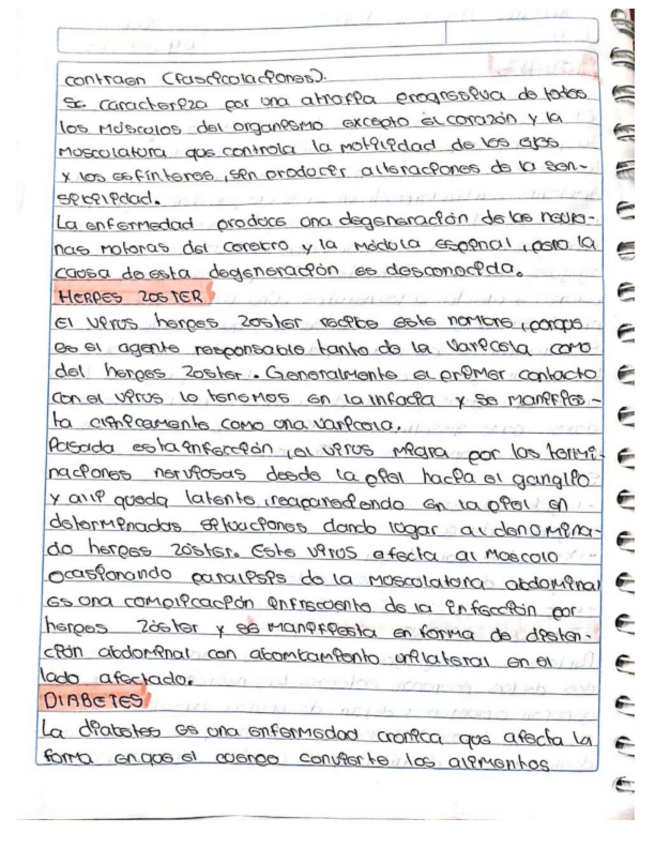 contraen (fascicolaciones).
Se caracteriza por una atroffia progressiva de todos
los músculos del organismo excepto el corazón y la
Musculatura que controla la motilidad de los ojos
y los esfínteres, sin producir alteraciones de la sen-
sibilidad.
La enfermedad produce una degeneración de las neuro-
nas motoras del cerebro y la médula espinal, pero la
causa de esta degeneración es desconocida.
HERPES ZOSTER
El virus herpes zoster recibe este nombre, porque
es el agente responsable tanto de la varicela como
del herpes zoster. Generalmente el primer contacto
con el virus lo tenemos en la infacia y se manifies-
ta clínicamente como una varicera.
Pasada esta infección, el virus migra por las termi-
naciones nerviosas desde la piel hacia el ganglio
y allí queda latente, reapareciendo en la piel en
determinadas situaciones dando lugar al denomina-
do herpes zóster. Este virus afecta al músculo
ocasionando parálisis de la musculatura abdominal
es una complicación infrecuente de la infección por
herpes zóster y se manifiesta en forma de disten-
ción abdominal con abombamiento unilateral en el
lado afectado.
DIABETES
La diabetes es una enfermedad cronica que afecta la
forma en que el cuerpo convierte los alimentos